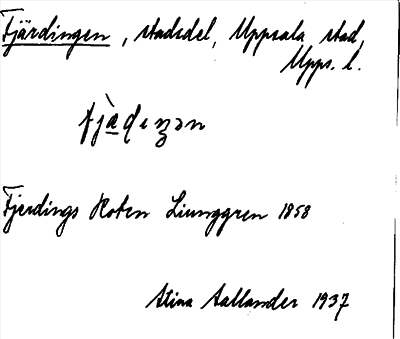 Fjärdingen, stadsdel, Uppsala stad,
Upps. l.
Fjerdings Roten Ljunggren 1858
Stina Aallander 1937